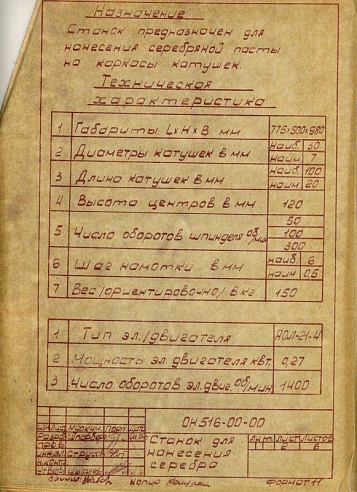 Назначение
Станок предназначен для
нанесения серебряной пасты
на каркасы катушек.
Техническая
характеристика
1 Габариты LxHxB мм 775x500x980
2 Диаметры катушек в мм наиб. 30
наим. 7
3 Длина катушек в мм наиб. 100
наим. 20
4 Высота центров в мм 120
5 Число оборотов шпинделя об/мин 50
100
300
6 Шаг намотки в мм наиб. 6
наим. 0,5
7 Вес /ориентировочно/ в кг 150
1 Тип эл./двигателя АОЛ-21-4
2 Мощность эл. двигателя квт. 0,27
3 Число оборотов эл. двиг. об/мин 1400
ОН516-00-00
Станок для
нанесения
серебра
Лит. Лист Листов
2 6
Копир. Формат 11